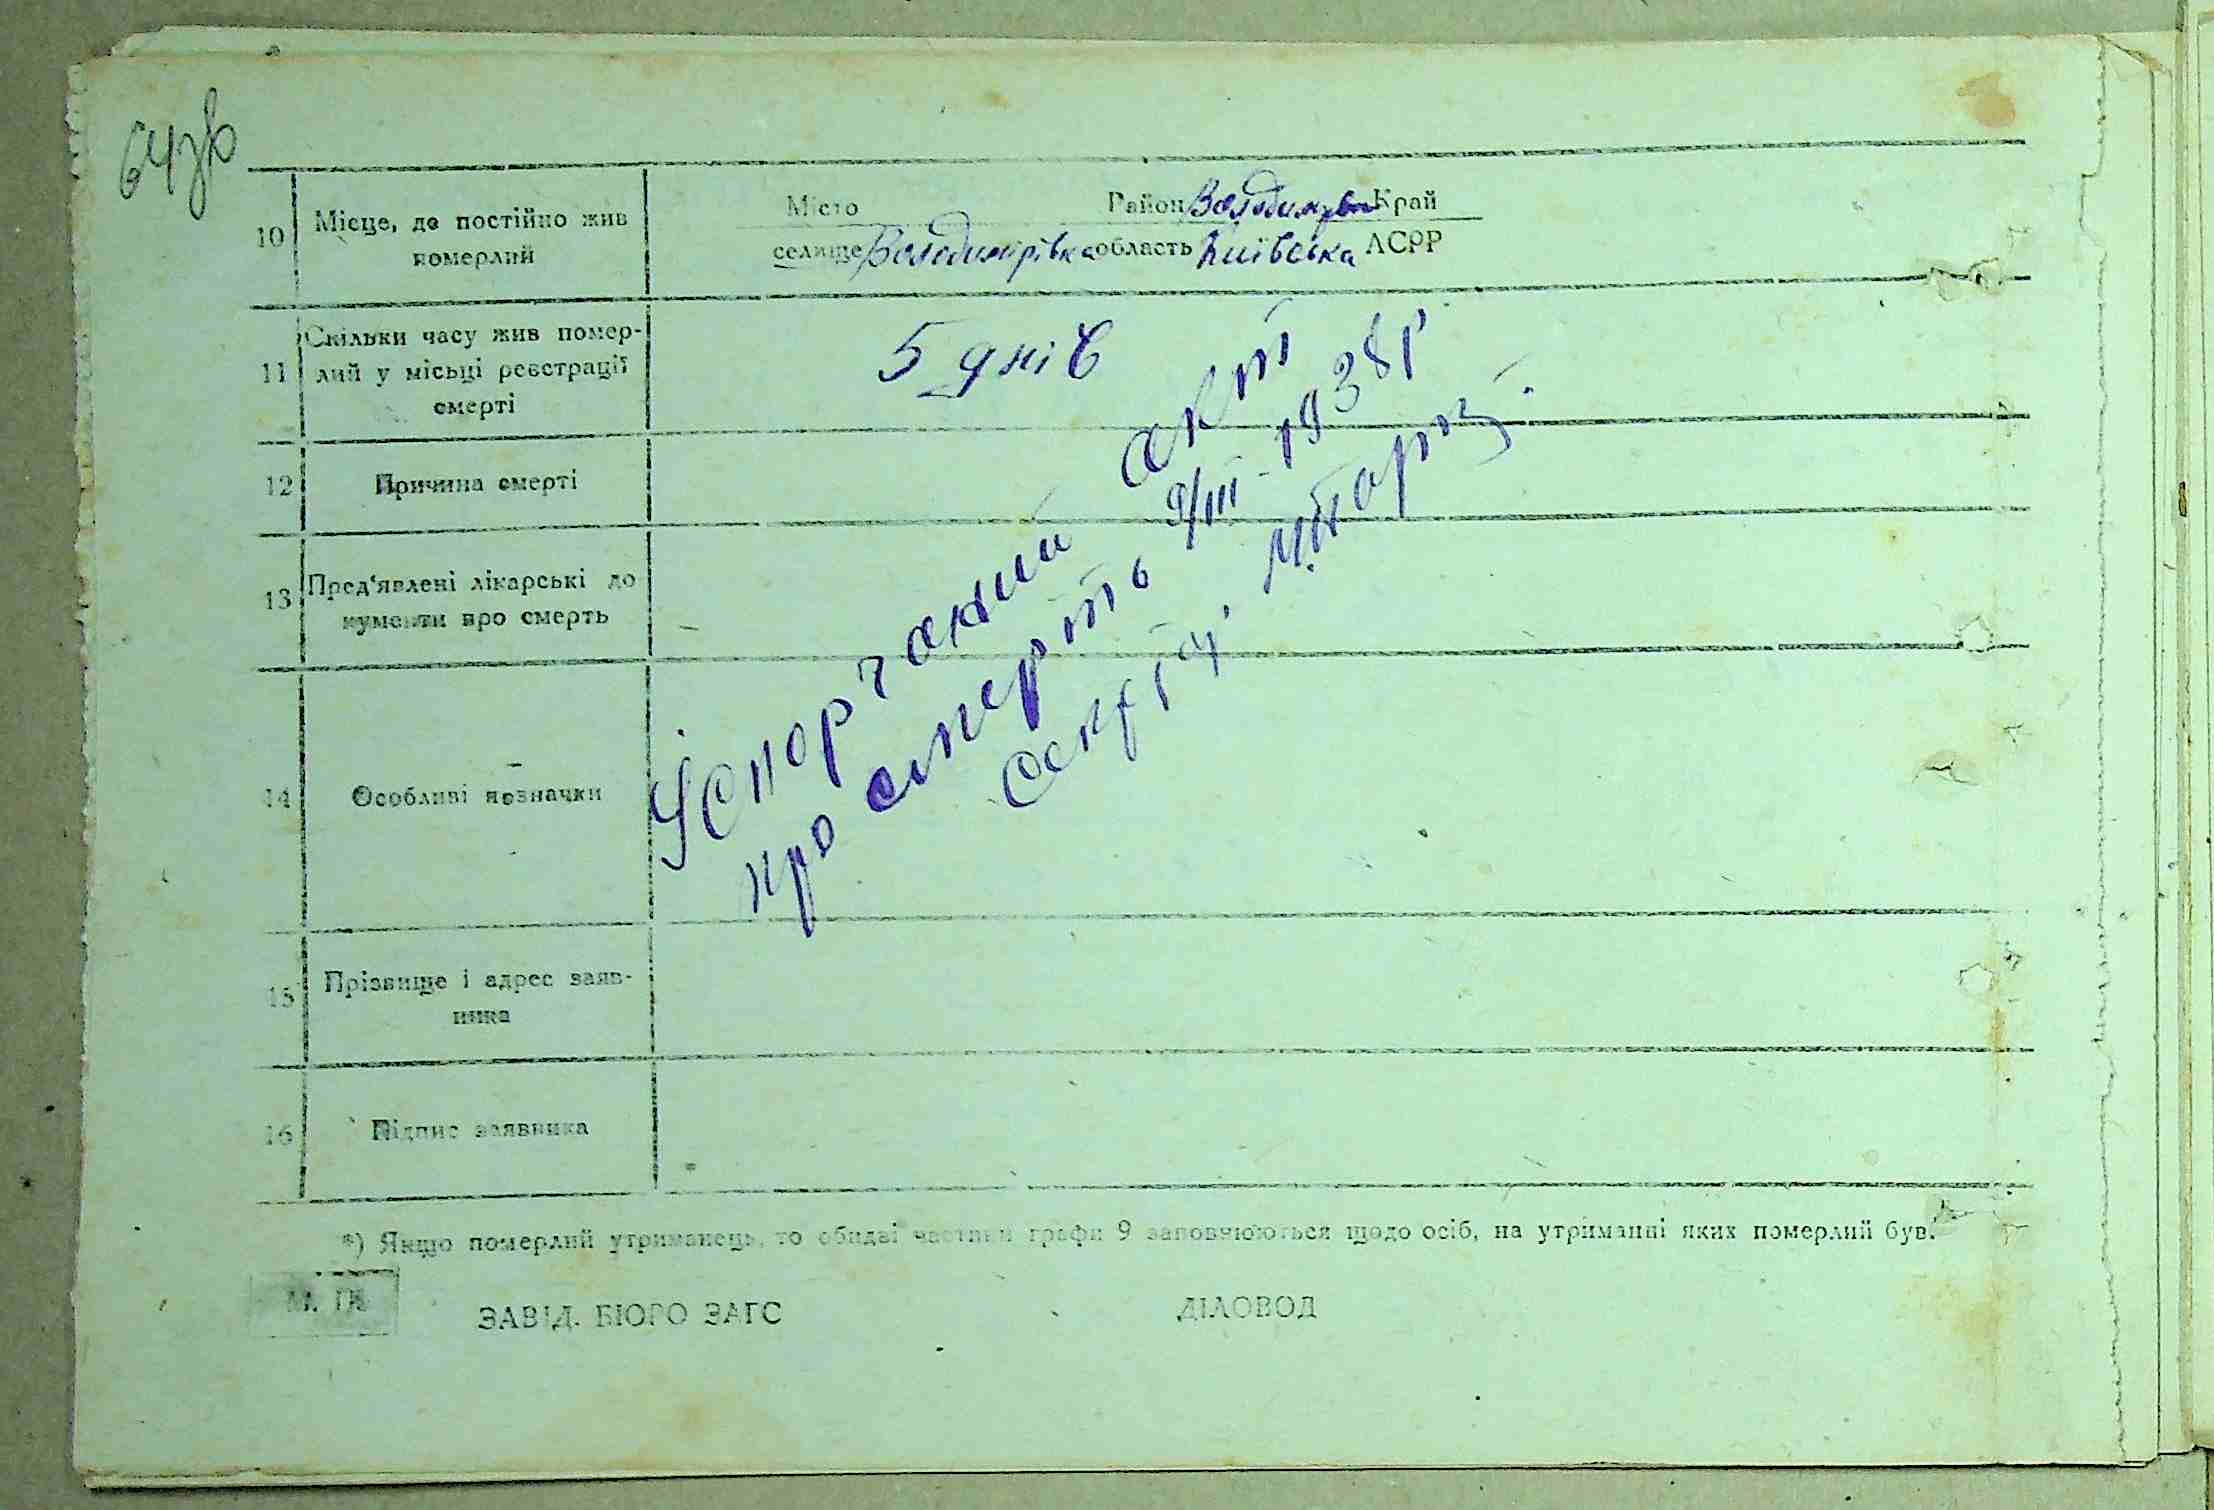 64зв
10 Місце, де постійно жив померлий
Місто Район Край
селище Володимирівка область Київська АСРР
11 Скільки часу жив помер-
лий у місьці реєстрації
смерті
5 днів
12 Причина смерті
13 Пред'явлені лікарські до
кументи про смерть
14 Особливі позначки
Успорчений акт
про смерть 9/III-1938р
15 Прізвище і адрес заяв-
ника
16 Підпис заявника
*) Якщо померлий утриманець, то обидві частини графи 9 заповнюються щодо осіб, на утриманні яких померлий був.
М. П.
ЗАВІД. БЮРО ЗАГС ДІЛОВОД